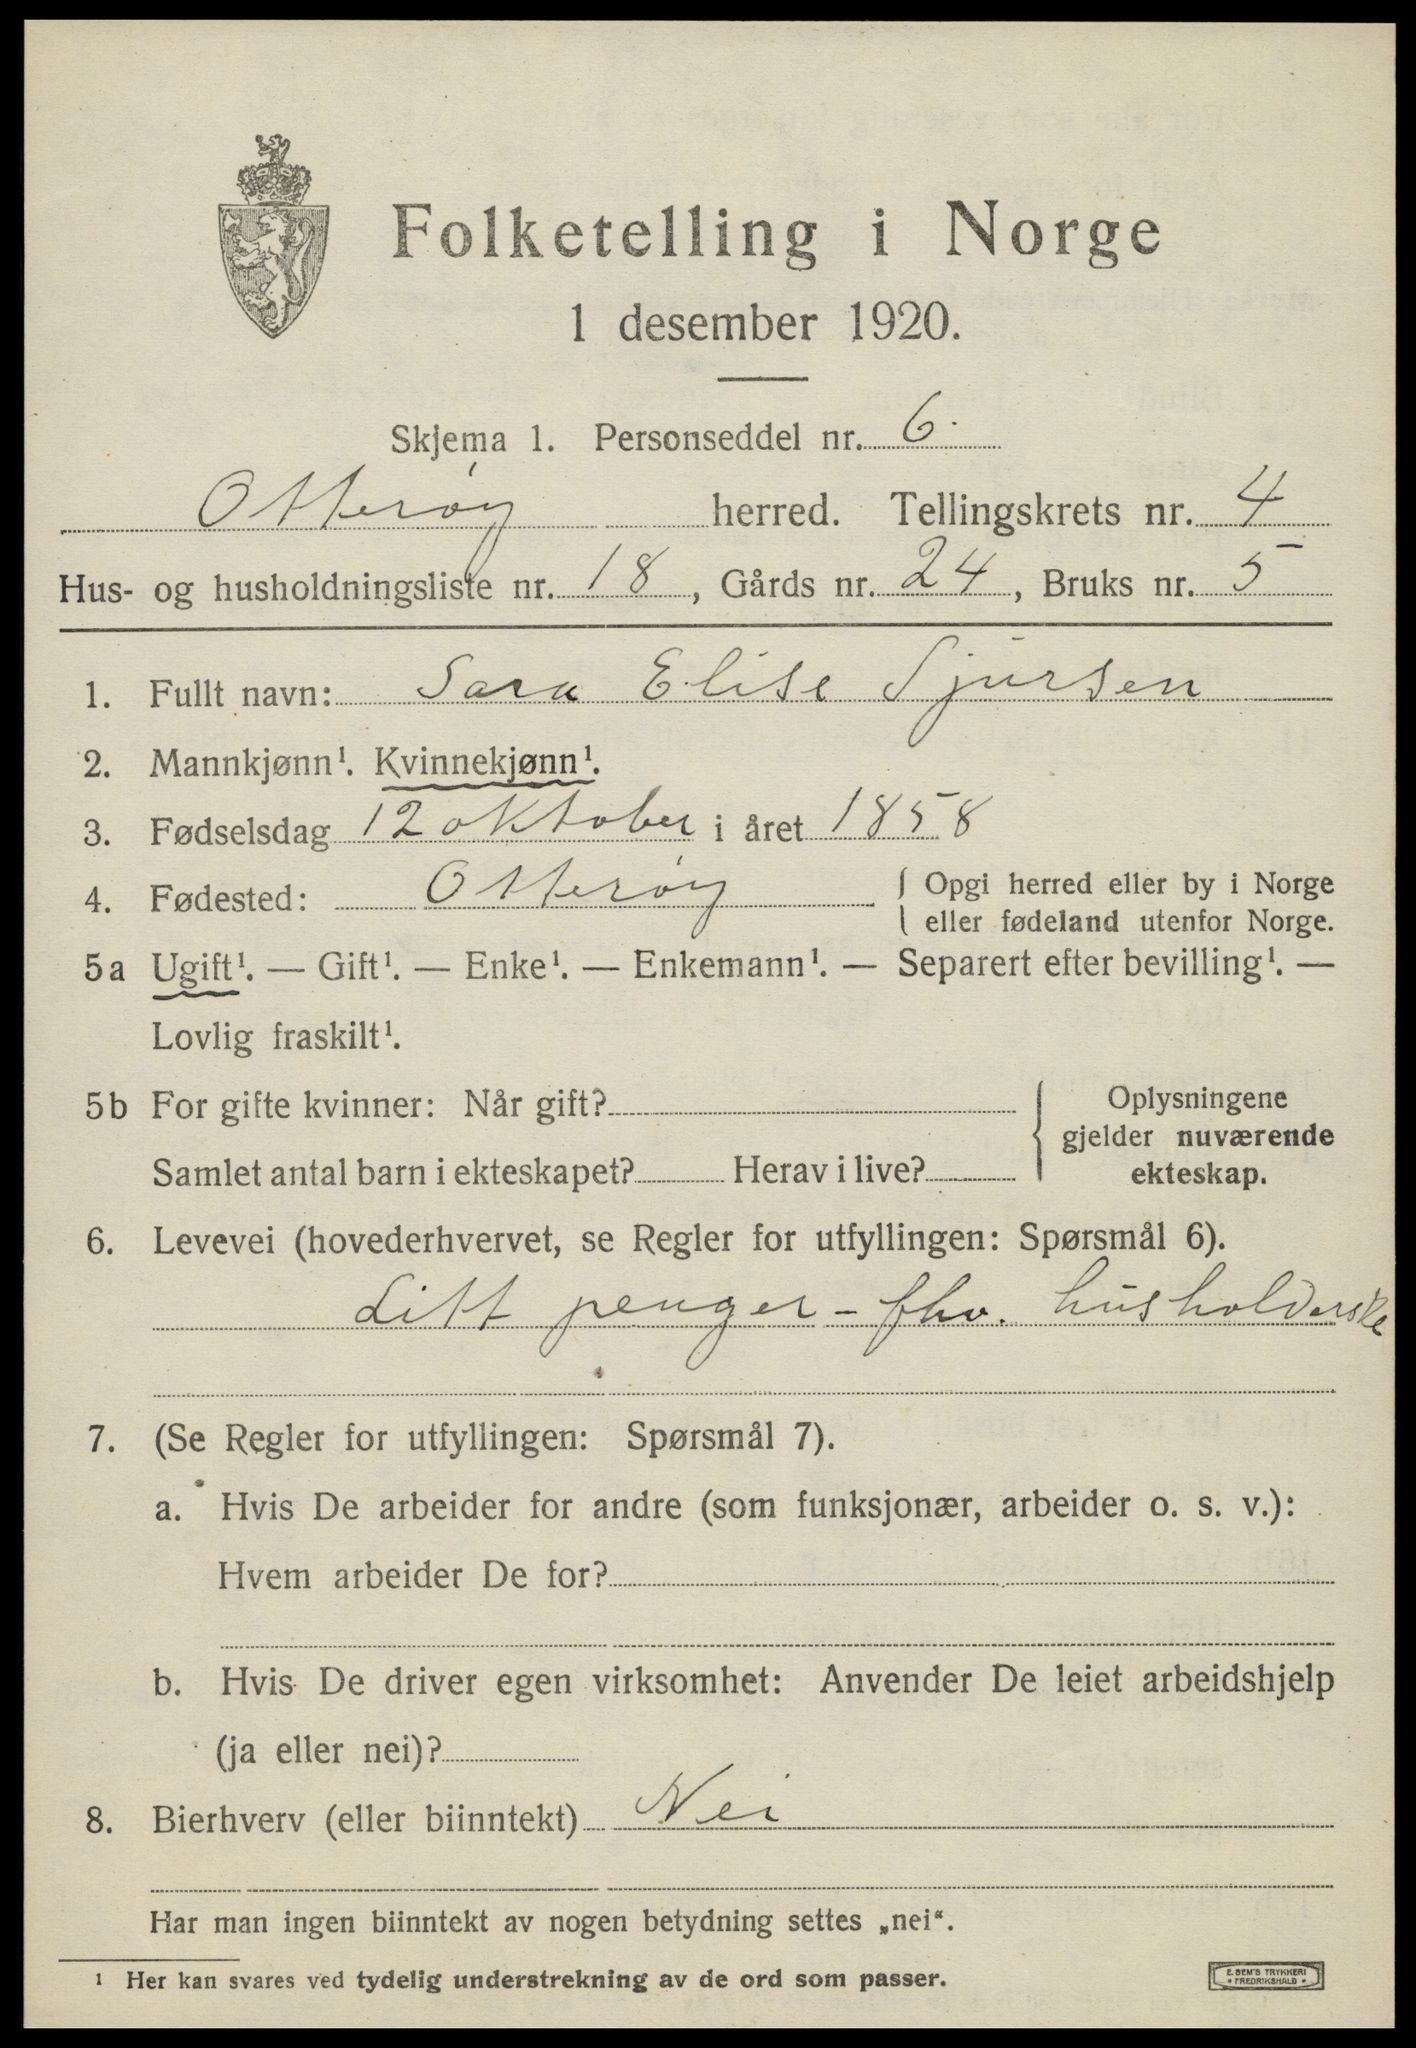 Folketelling i Norge
1 desember 1920.
Skjema 1. Personseddel nr. 6.
Otterøy herred. Tellingskrets nr. 4
Hus- og husholdningsliste nr. 18, Gårds nr. 24, Bruks nr. 5
1. Fullt navn: Sara Elise Sjursen
2. Mannkjønn¹. Kvinnekjønn¹.
3. Fødselsdag 12 oktober i året 1858
4. Fødested: Otterøy { Opgi herred eller by i Norge
eller fødeland utenfor Norge.
5a Ugift¹. — Gift¹. — Enke¹. — Enkemann¹. — Separert efter bevilling¹. —
Lovlig fraskilt¹.
5b For gifte kvinner: Når gift?
Samlet antal barn i ekteskapet? Herav i live?
{ Oplysningene
gjelder nuværende
ekteskap.
6. Levevei (hovederhvervet, se Regler for utfyllingen: Spørsmål 6).
Litt penger - fhv. husholderske
7. (Se Regler for utfyllingen: Spørsmål 7).
a. Hvis De arbeider for andre (som funksjonær, arbeider o. s. v.):
Hvem arbeider De for?
b. Hvis De driver egen virksomhet: Anvender De leiet arbeidshjelp
(ja eller nei)?
8. Bierhverv (eller biinntekt) Nei
Har man ingen biinntekt av nogen betydning settes „nei“.
¹ Her kan svares ved tydelig understrekning av de ord som passer.
E. SEM'S TRYKKERI
* FREDRIKSHALD *